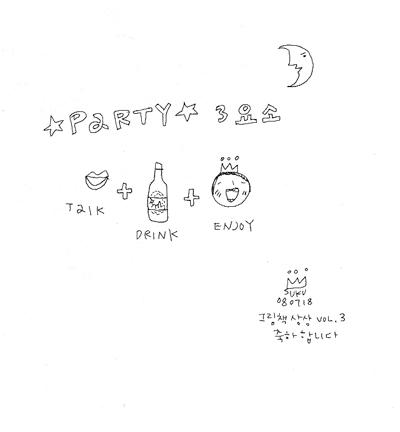 ☆PaRTY☆ 3요소
TaIK + DRINK + ENJOY
SUKU
080718
그림책상상 VOL.3
축하합니다